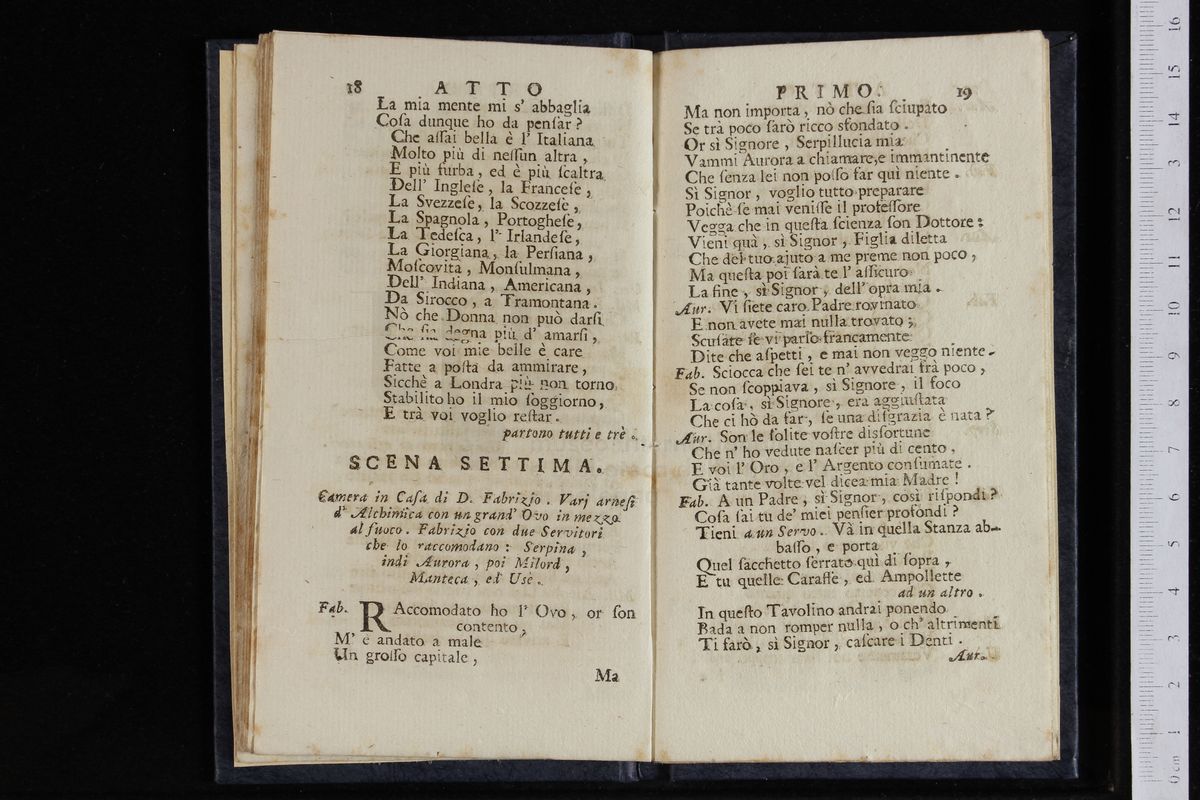 18 ATTO
La mia mente mi s' abbaglia
Coſa dunque ho da penſar?
Che aſſai bella è l' Italiana
Molto più di neſſun altra,
E più furba, ed è più ſcaltra
Dell' Ingleſe, la Franceſe,
La Svezzeſe, la Scozzeſe,
La Spagnola, Portogheſe,
La Tedeſca, l' Irlandeſe,
La Giorgiana, la Perſiana,
Moſcovita, Monſulmana,
Dell' Indiana, Americana,
Da Sirocco, a Tramontana.
Nò che Donna non può darſi
Che ſia degna più d' amarſi,
Come voi mie belle è care
Fatte a poſta da ammirare,
Sicchè a Londra più non torno
Stabilito ho il mio ſoggiorno,
E trà voi voglio reſtar.
partono tutti e trè.
SCENA SETTIMA.
Camera in Caſa di D. Fabrizio. Varj arneſi
d' Alchimica con un grand' Ovo in mezzo
al fuoco. Fabrizio con due Servitori
che lo raccomodano: Serpina,
indi Aurora, poi Milord,
Manteca, ed Usè.
Fab. RAccomodato ho l' Ovo, or ſon
contento,
M' è andato a male
Un groſſo capitale,
Ma
PRIMO. 19
Ma non importa, nò che ſia ſciupato
Se trà poco ſarò ricco sfondato.
Or sì Signore, Serpillucia mia
Vammi Aurora a chiamare, e immantinente
Che ſenza lei non poſſo far quì niente.
Sì Signor, voglio tutto preparare
Poichè ſe mai veniſſe il profeſſore
Vegga che in queſta ſcienza ſon Dottore:
Vieni quà, sì Signor, Figlia diletta
Che del tuo ajuto a me preme non poco,
Ma queſta poi ſarà te l' aſſicuro
La fine, sì Signor, dell' opra mia.
Aur. Vi ſiete caro Padre rovinato
E non avete mai nulla trovato;
Scuſate ſe vi parlo francamente
Dite che aſpetti, e mai non veggo niente.
Fab. Sciocca che ſei te n' avvedrai frà poco,
Se non ſcoppiava, sì Signore, il foco
La coſa, sì Signore, era aggiuſtata
Che ci hò da far, ſe una diſgrazia è nata?
Aur. Son le ſolite voſtre disfortune
Che n' ho vedute naſcer più di cento,
E voi l' Oro, e l' Argento conſumate.
Già tante volte vel dicea mia Madre!
Fab. A un Padre, sì Signor, così riſpondi?
Coſa ſai tu de' miei penſier profondi?
Tieni a un Servo. Và in quella Stanza ab-
baſſo, e porta
Quel ſacchetto ſerrato quì di ſopra,
E tu quelle Caraffe, ed Ampollette
ad un altro.
In queſto Tavolino andrai ponendo
Bada a non romper nulla, o ch' altrimenti
Ti farò, sì Signor, caſcare i Denti.
Aur.
0 cm 1 2 3 4 5 6 7 8 9 10 11 12 13 14 15 16